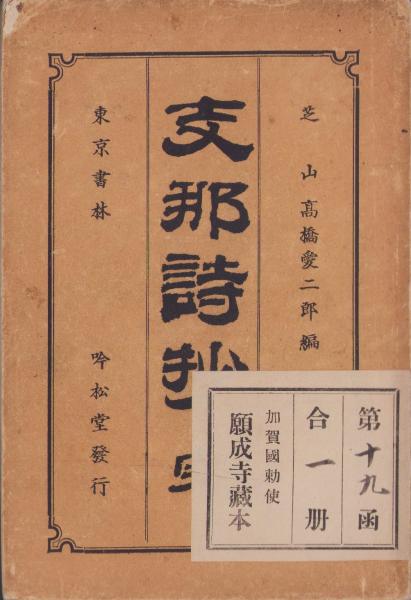 芝山高橋愛二郎編
支那詩抄
東京書林
吟松堂發行
第十九函
合一册
加賀國勅使
願成寺藏本